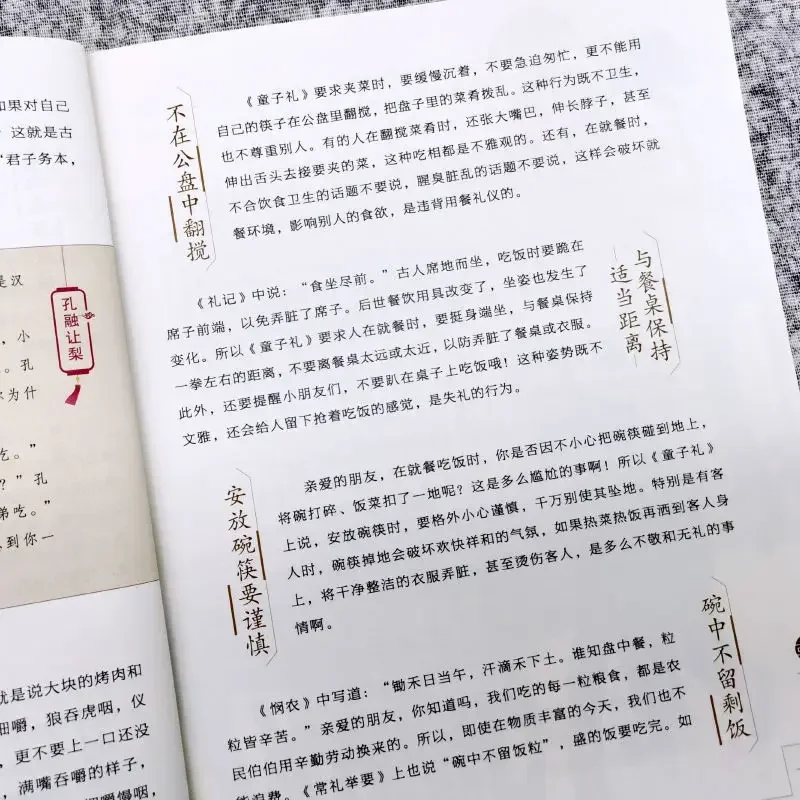 如果对自己
？这就是古
“君子务本，
是汉
孔融让梨
，小
。孔
你为什
吃。”
？”孔
弟吃。”
到你一
就是说大块的烤肉和
细嚼，狼吞虎咽，仪
，更不要上一口还没
，满嘴吞嚼的样子，
细嚼慢咽，
不在公盘中翻搅
《童子礼》要求夹菜时，要缓慢沉着，不要急迫匆忙，更不能用
自己的筷子在公盘里翻搅，把盘子里的菜肴拨乱。这种行为既不卫生，
也不尊重别人。有的人在翻搅菜肴时，还张大嘴巴，伸长脖子，甚至
伸出舌头去接要夹的菜，这种吃相都是不雅观的。还有，在就餐时，
不合饮食卫生的话题不要说，腥臭脏乱的话题不要说，这样会破坏就
餐环境，影响别人的食欲，是违背用餐礼仪的。
与餐桌保持
适当距离
《礼记》中说：“食坐尽前。”古人席地而坐，吃饭时要跪在
席子前端，以免弄脏了席子。后世餐饮用具改变了，坐姿也发生了
变化。所以《童子礼》要求人在就餐时，要挺身端坐，与餐桌保持
一拳左右的距离，不要离餐桌太远或太近，以防弄脏了餐桌或衣服。
此外，还要提醒小朋友们，不要趴在桌子上吃饭哦！这种姿势既不
文雅，还会给人留下抢着吃饭的感觉，是失礼的行为。
安放碗筷要谨慎
亲爱的朋友，在就餐吃饭时，你是否因不小心把碗筷碰到地上，
将碗打碎、饭菜扣了一地呢？这是多么尴尬的事啊！所以《童子礼》
上说，安放碗筷时，要格外小心谨慎，千万别使其坠地。特别是有客
人时，碗筷掉地会破坏欢快祥和的气氛，如果热菜热饭再洒到客人身
上，将干净整洁的衣服弄脏，甚至烫伤客人，是多么不敬和无礼的事
情啊。
碗中不留剩饭
《悯农》中写道：“锄禾日当午，汗滴禾下土。谁知盘中餐，粒
粒皆辛苦。”亲爱的朋友，你知道吗，我们吃的每一粒粮食，都是农
民伯伯用辛勤劳动换来的。所以，即使在物质丰富的今天，我们也不
能浪费。《常礼举要》上也说“碗中不留饭粒”，盛的饭要吃完。如